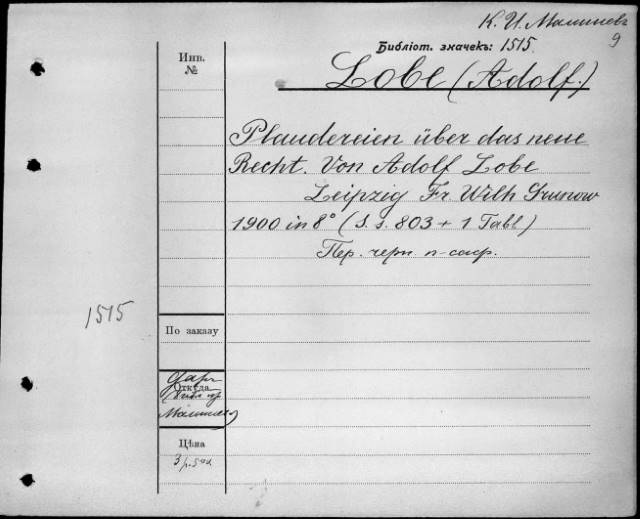 К. И. Малышевъ
9
Библіот. значекъ: 1515.
Инв.
№
Lobe (Adolf.)
Plaudereien über das neue
Recht. Von Adolf Lobe
Leipzig Fr. Wilh Grunow
1900 in 8° (S. s. 803 + 1 Tabl)
Пер. черн. п-саф.
1515
По заказу
Даръ
Откуда
Малышева
Цѣна
3 р.